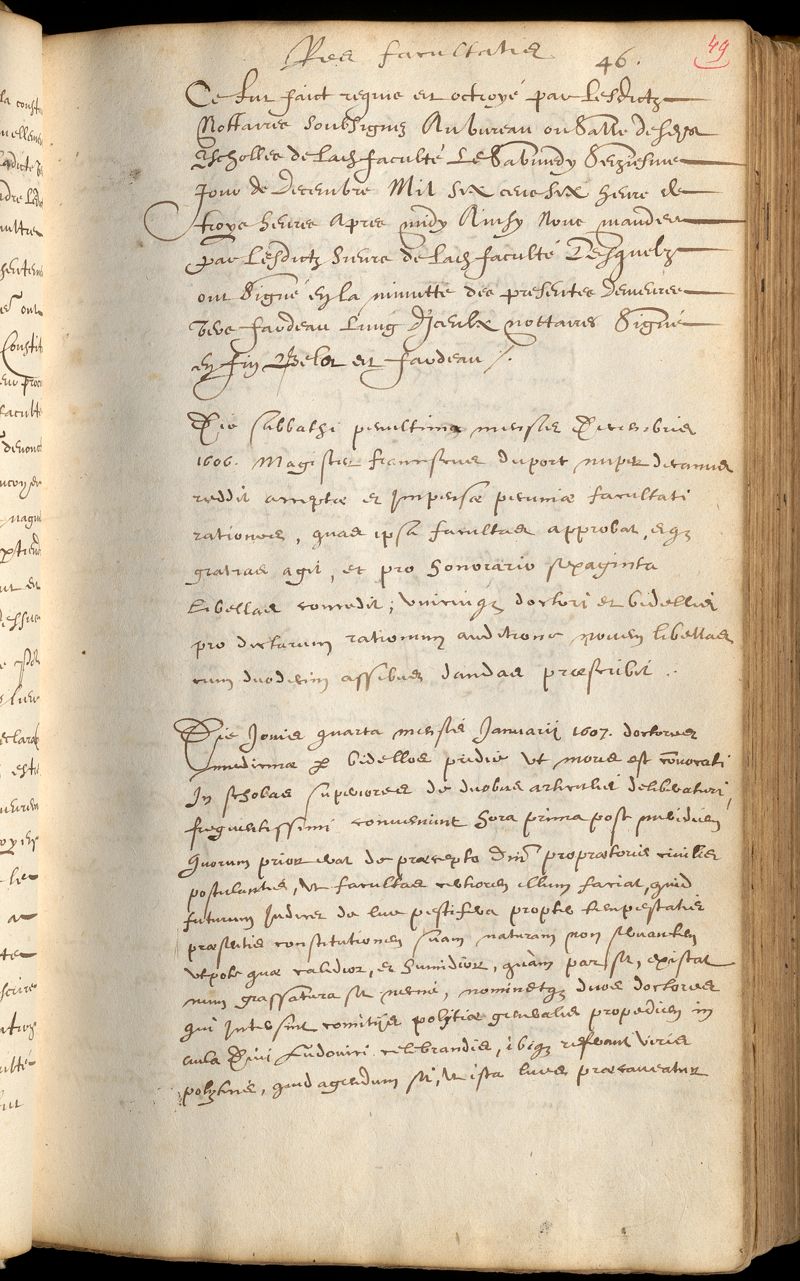 Res facultatis
46.
49
Ce fut faict requis et octroyé par lesdictz
Nottaires soubsignez Au bureau ou Salle desdictes
Escholles de lad. faculté Le Sabmedy Seziesme
Jour de Decembre Mil six cens six heure de
troys heures Apres midy Ainsy
par lesdictz Sieurs de lad. faculté Lesquelz
ont Signé en la minutte des presentes demeurée
vers fardeau L'ung d'Iceulx nottaires Signé
en fin et fardeau ./.
Die sabbathi penultima mensis Decembris
1606. Magister franciscus duport nuper decanus
reddit acceptæ et Impensæ pecuniæ facultati
rationes, quas ipsa facultas approbat, eiq;
gratias agit, et pro honorario sexaginta
libellas concedit; unicuiq; doctori et bidellis
pro dictarum rationum auditione novem libellas
cum duodecim assibus dandas præscribit .
Die Jovis quarta mensis Januarii 1607. doctores
medicinæ per bidellos pridie ut moris est convocati
In scholas superiores de duobus articulis deliberaturi,
frequentissimi conveniunt hora prima post meridiem
Quorum prior erat de præcepto Dni proprætoris civilis
postulantis, ut facultas certiorem illum faciat, quid
futurum Judicet de lue pestifera propter tempestatis
præsentis constitutionem suam naturam non servantem
utpote quæ calidior, et humidior, quam par sit, existat
num grassatura sit necne, nominetq; duos doctores
qui Intersint comitiis politiæ generalis propediem in
aula Divi Ludovici celebrandis, ibiq; referant viris
politicis, quid agendum sit, ut ista lues præcaveatur